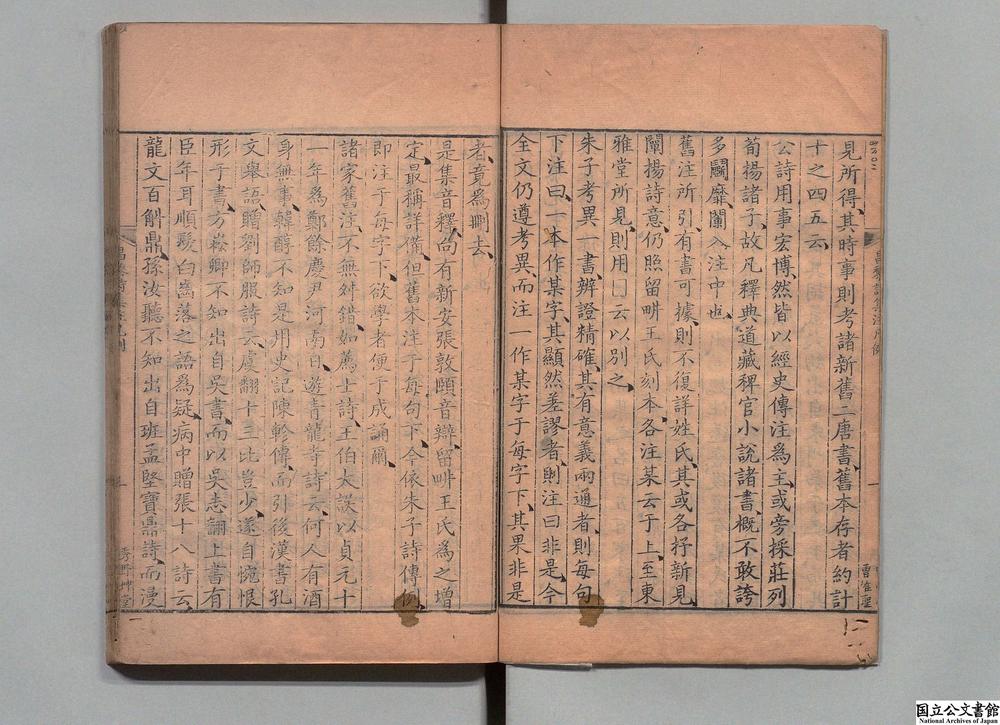 見所得其時事則考諸新舊二唐書舊本存者約計
十之四五云
公詩用事宏博然皆以經史傳注爲主或旁採莊列
荀揚諸子故凡釋典道藏稗官小說諸書概不敢誇
多鬬靡闌入注中也
舊注所引有書可據則不復詳姓氏其或各抒新見
闡揚詩意仍照留畊王氏刻本各注某云于上至東
雅堂所見則用囗云以別之
朱子考異一書辨證精確其有意義兩通者則每句
下注曰一本作某字其顯然差謬者則注曰非是今
全文仍遵考異而注一作某字于每字下其果非是
者竟爲刪去
是集音釋向有新安張敦頤音辯留畊王氏爲之增
定最稱詳備但舊本注于每句下今依朱子詩傳例
即注于每字下欲學者便于成誦爾
諸家舊注不無舛錯如薦士詩王伯大誤以貞元十
一年爲鄭餘慶尹河南日遊青龍寺詩云何人有酒
身無事韓醇不知是用史記陳軫傳而引後漢書孔
文舉語贈劉師服詩云虞翻十三比豈少遂自惋恨
形于書方崧卿不知出自吳書而以吳志翻上書有
臣年耳順髮白齒落之語爲疑病中贈張十八詩云
龍文百斛鼎孫汝聽不知出自班孟堅寶鼎詩而漫
国立公文書館
National Archives of Japan